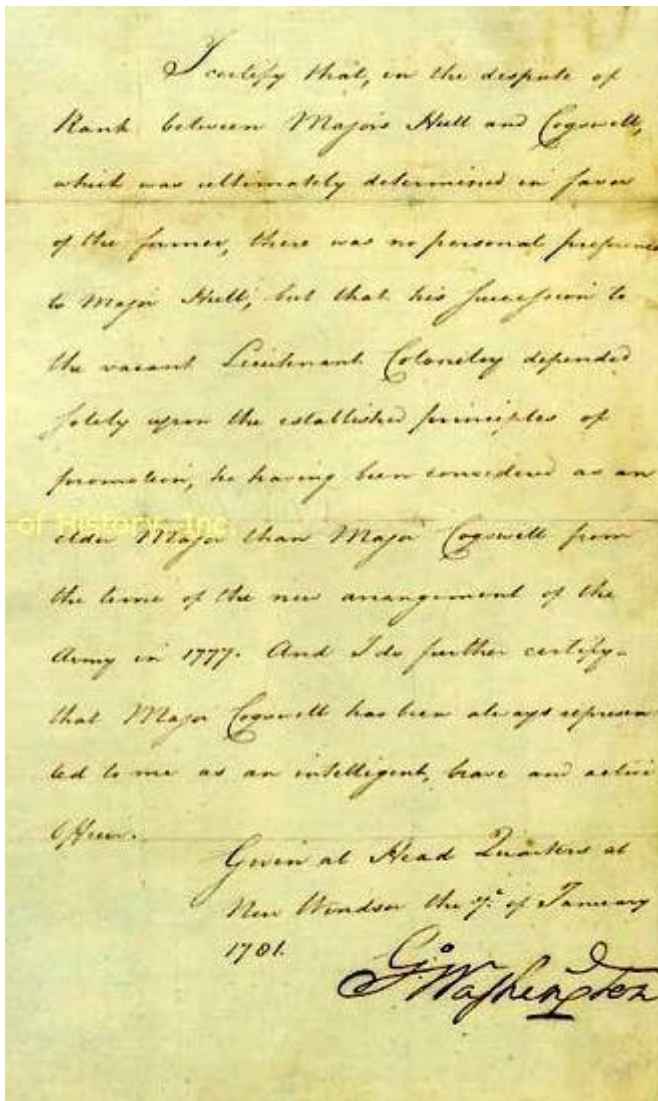 I certify that, in the dispute of
Rank between Majors Hull and Cogswell,
which was ultimately determined in favor
of the former, there was no personal preference
to Major Hull; but that his succession to
the vacant Lieutenant Colonelcy depended
solely upon the established principles of
promotion, he having been considered as an
of History, Inc
elder Major than Major Cogswell from
the time of the new arrangement of the
Army in 1777. And I do further certify
that Major Cogswell has been always represen
ted to me as an intelligent, brave and active
Officer.
Given at Head Quarters at
New Windsor the 7th of January
1781.
G. Washington